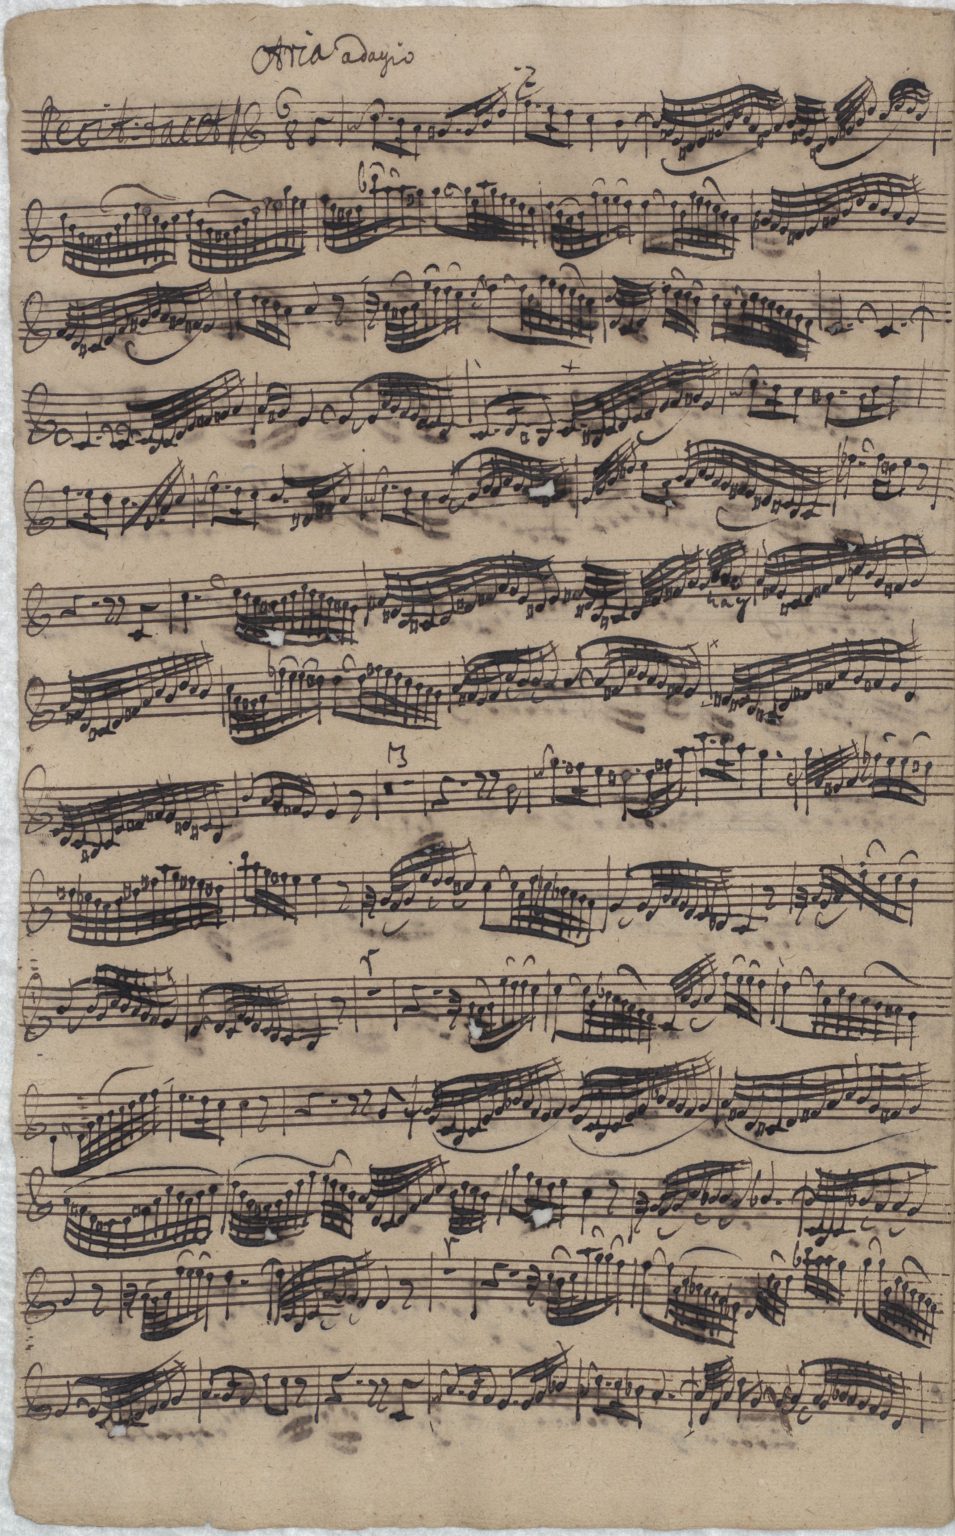 Aria adagio
Recit: tacet
6
8